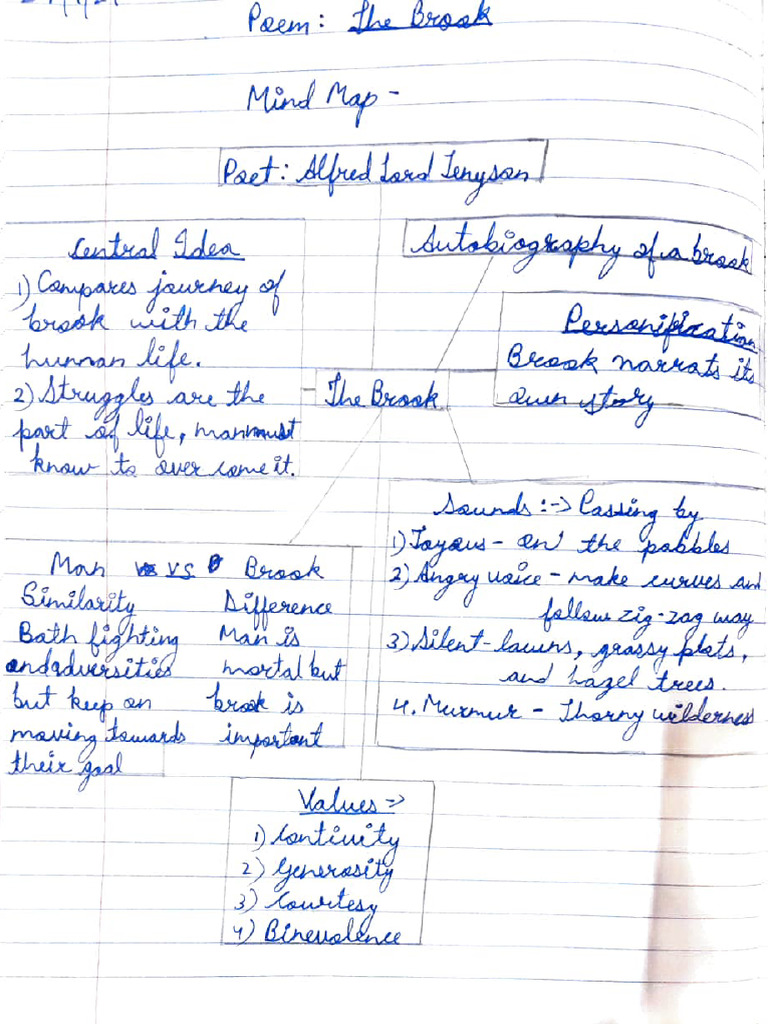 Poem: The Brook
Mind Map -
Poet: Alfred Lord Tenyson
Central Idea
1) Compares journey of
brook with the
human life.
2) Struggles are the
part of life, man must
know to over come it.
Autobiography of a brook
Personification
Brook narrats its
own story
The Brook
Sounds :-> Passing by
1) Joyous - on the pabbles
2) Angry voice - make curves and
follow zig-zag way
3) Silent - lawns, grassy plots,
and hazel trees.
4. Murmur - Thorny wilderness
Man vs Brook
Similarity Difference
Both fighting Man is
and adversities mortal but
but keep on brook is
moving towards important
their goal
Values =>
1) Continuity
2) Generosity
3) Courtesy
4) Binevolence